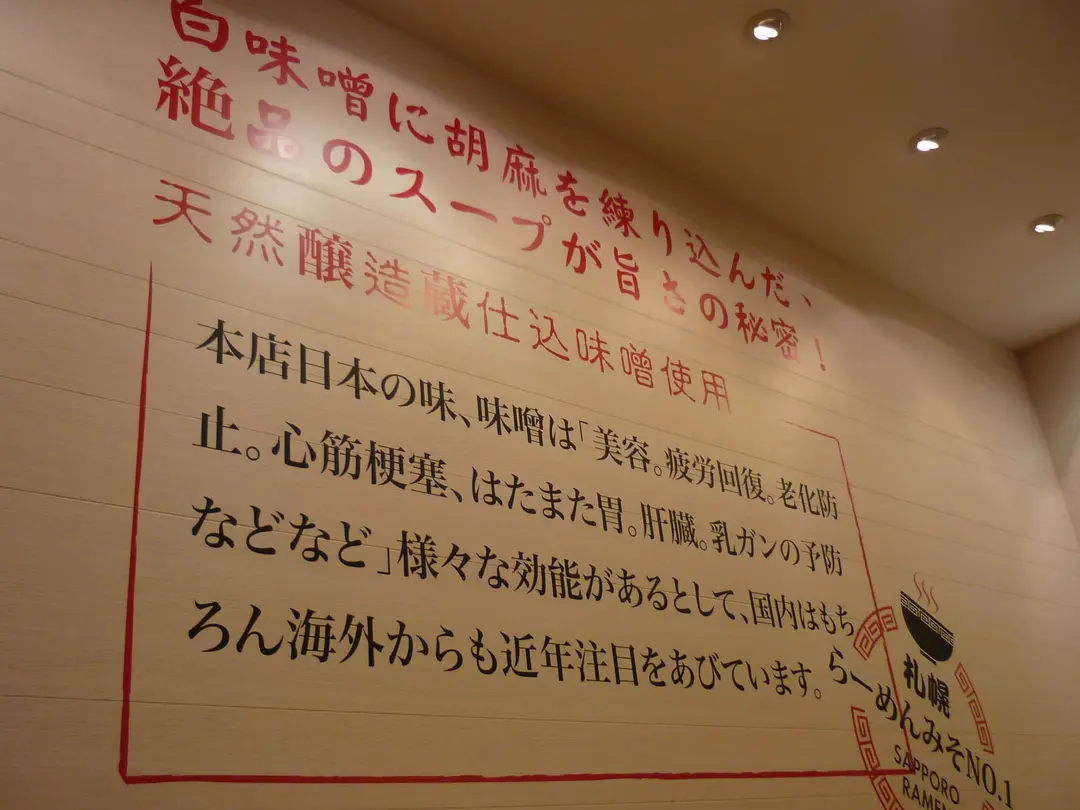 白味噌に胡麻を練り込んだ、
絶品のスープが旨さの秘密！
天然醸造蔵仕込味噌使用
本店日本の味、味噌は「美容。疲労回復。老化防
止。心筋梗塞、はたまた胃。肝臓。乳ガンの予防
などなど」様々な効能があるとして、国内はもち
ろん海外からも近年注目をあびています。
札幌
らーめんみそNO.1
SAPPORO
RAMEN